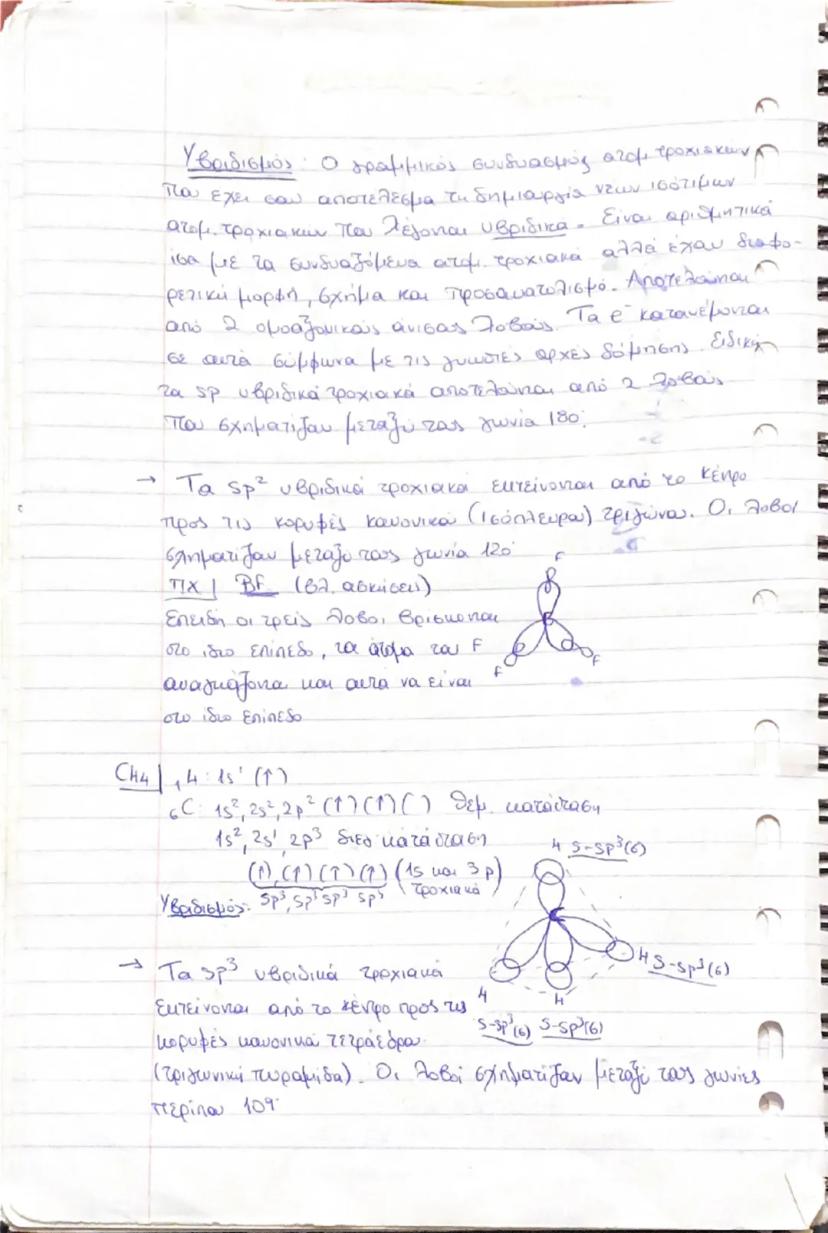 Υβριδισμός: Ο γραμμικός συνδυασμός ατομ. τροχιακών
που έχει σαν αποτέλεσμα τη δημιουργία νέων ισότιμων
ατομ. τροχιακών που λέγονται υβριδικά. Είναι αριθμητικά
ίσα με τα συνδυαζόμενα ατομ. τροχιακά αλλά έχουν διαφο-
ρετική μορφή, σχήμα και προσανατολισμό. Αποτελούνται
από 2 ομοαξονικούς άνισους λοβούς. Τα e⁻ κατανέμονται
σε αυτά σύμφωνα με τις γνωστές αρχές δόμησης. Ειδικά
τα sp υβριδικά τροχιακά αποτελούνται από 2 λοβούς
που σχηματίζουν μεταξύ τους γωνία 180°.
→ Τα sp² υβριδικά τροχιακά εκτείνονται από το κέντρο
προς τις κορυφές κανονικού (ισόπλευρου) τριγώνου. Οι λοβοί
σχηματίζουν μεταξύ τους γωνία 120°
F
πχ | BF (βλ. ασκήσεις)
Επειδή οι τρείς λοβοι βρισκονται
B
στο ιδιο επίπεδο, τα άτομα του F
F F
αναγκάζονται και αυτα να είναι
στο ιδιο επίπεδο
CH4 | ₁H: 1s¹ (↑)
₆C: 1s², 2s², 2p² (↑)(↑)( ) Θεμ. κατάσταση
1s², 2s¹, 2p³ διεγ κατάσταση
H s-sp³(σ)
(↑), (↑)(↑)(↑) (1s και 3p τροχιακά)
Υβριδισμός: sp³, sp³ sp³ sp³
C
H s-sp³(σ)
→ Τα sp³ υβριδικά τροχιακά
H H
εκτείνονται από το κέντρο προς τις
s-sp³(σ) s-sp³(σ)
κορυφές κανονικού τετραέδρου
(τριγωνική πυραμίδα). Οι λοβοί σχηματίζουν μεταξύ τους γωνίες
περίπου 109°